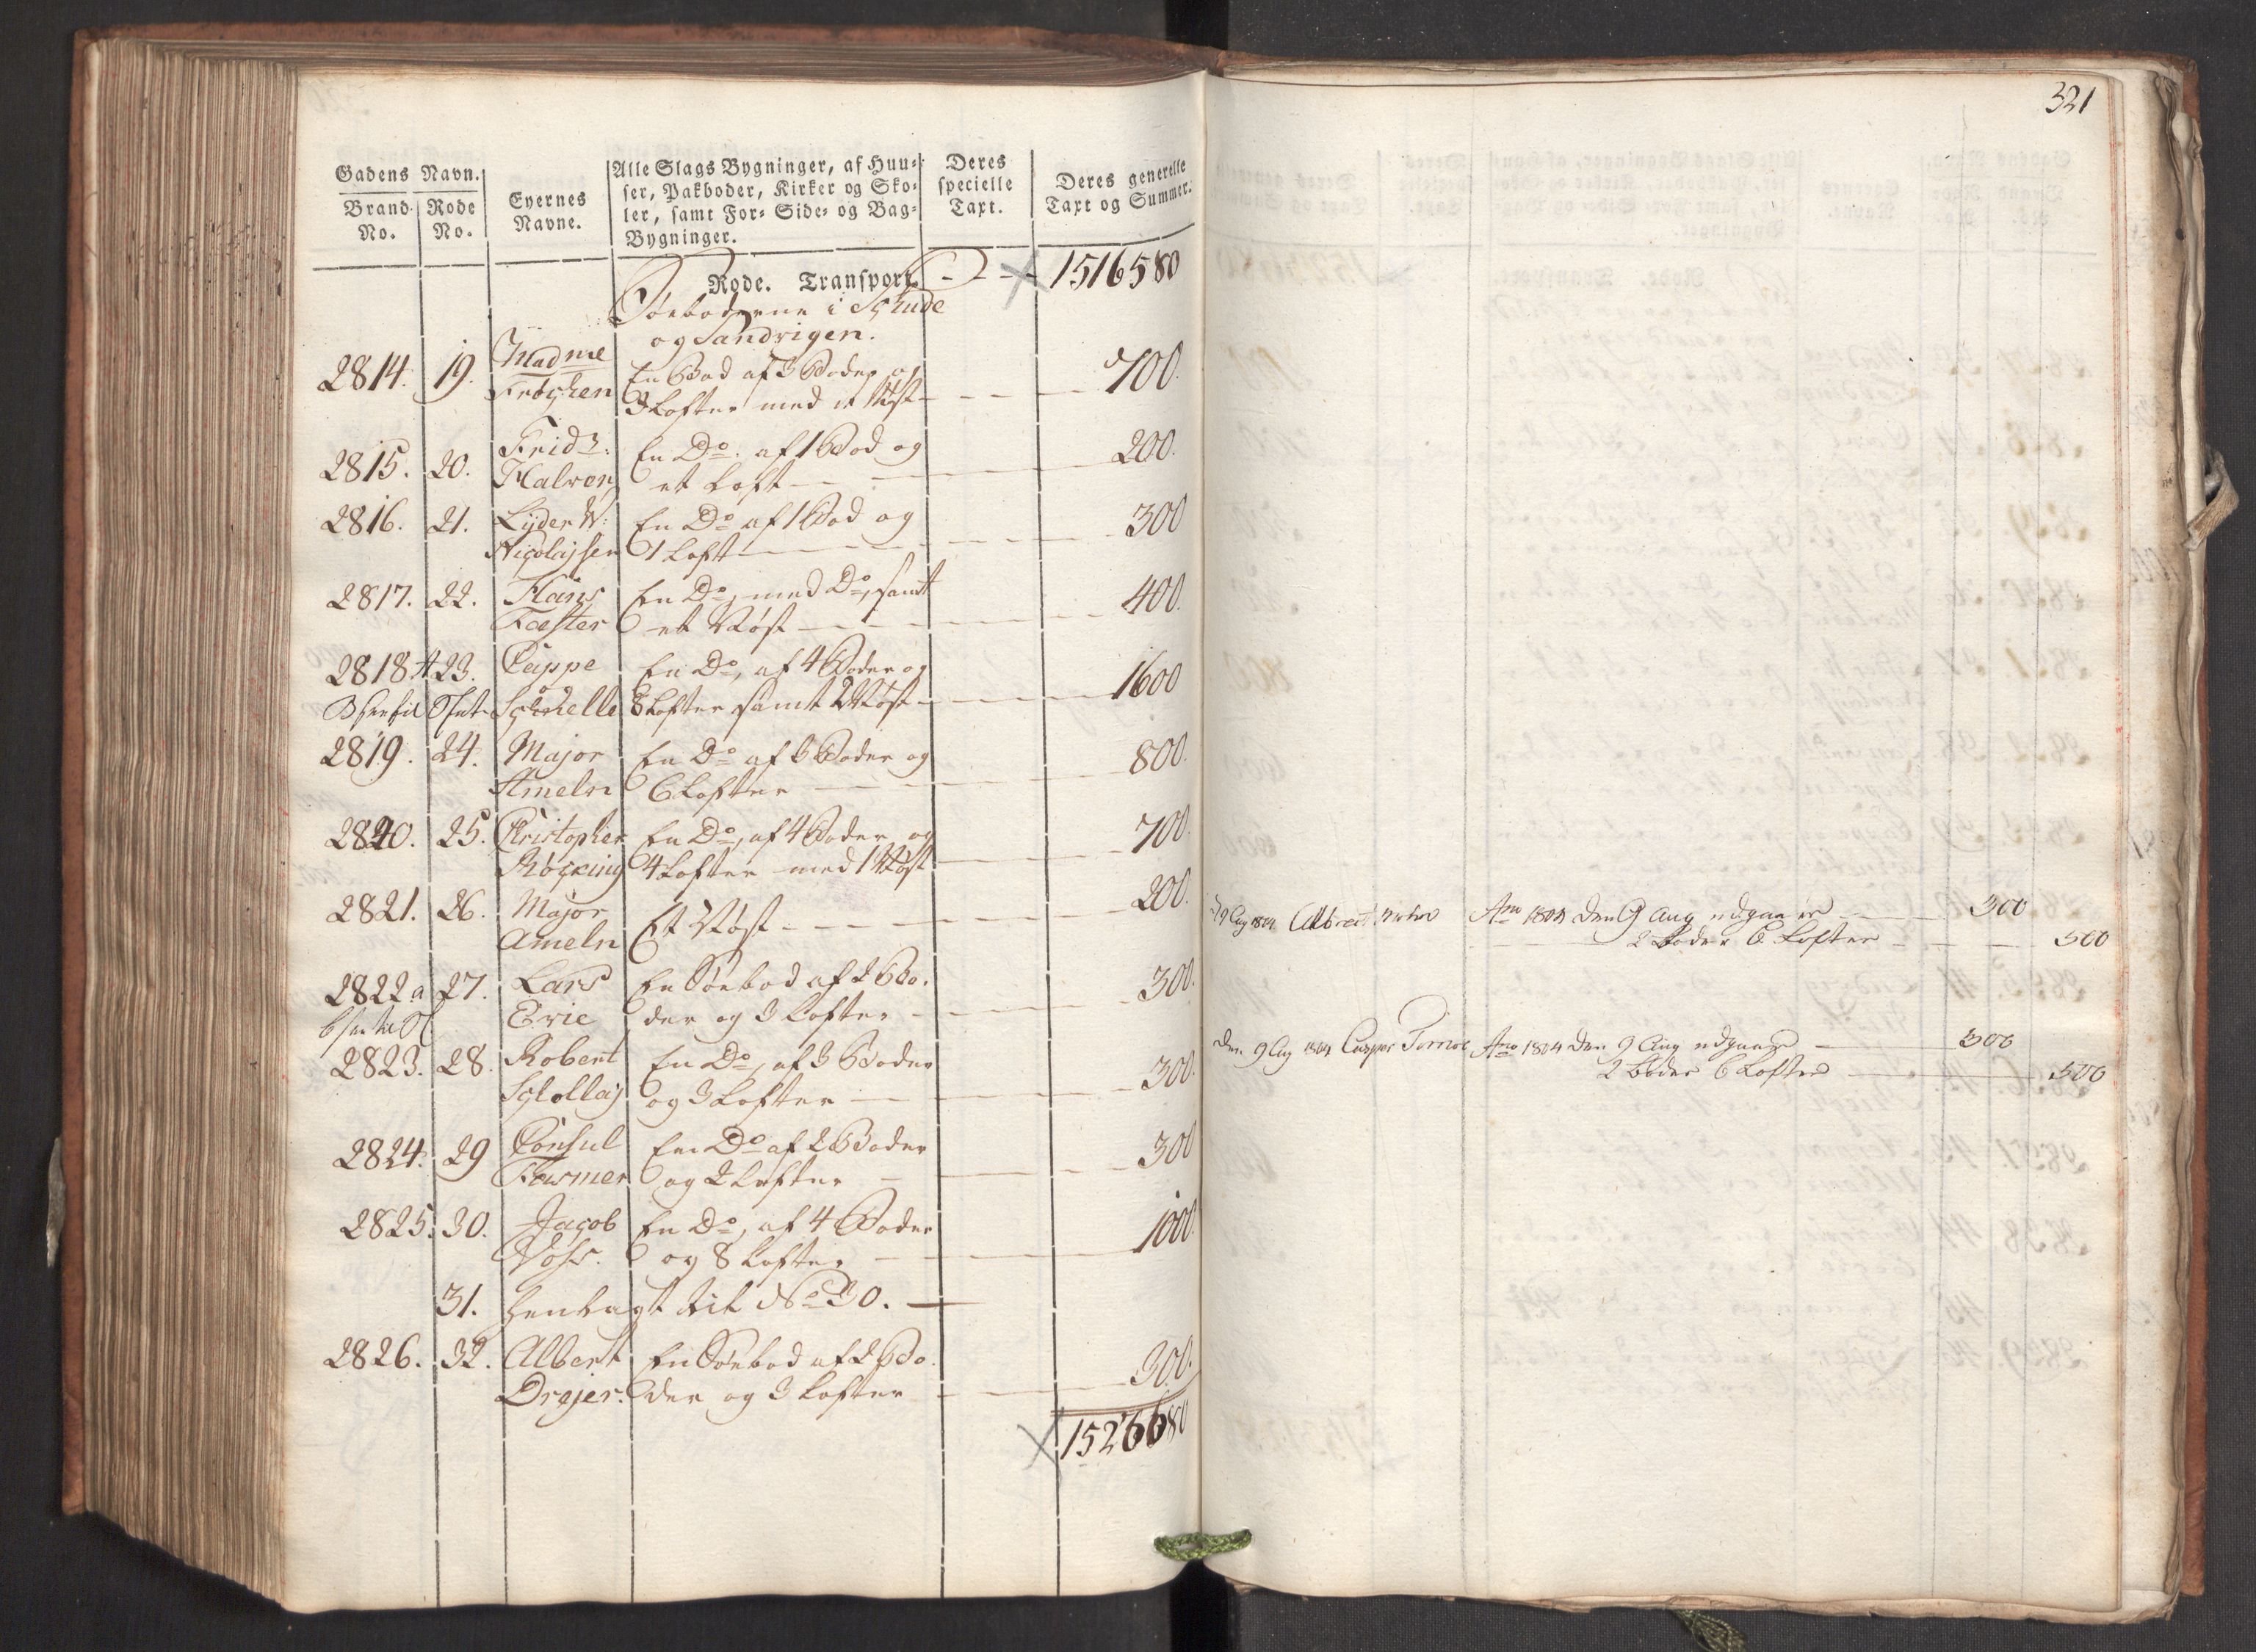 321
Gadens Navn.
Brand No. Rode No.
Eyernes Navne.
Alle Slags Bygninger, af Huu-
ser, Pakboder, Kirker og Sko-
ler, samt For- Side- og Bag-
Bygninger.
Deres specielle Taxt.
Deres generelle Taxt og Summer.
Rode. Transport 1516580
Söeboderne i Schude
og Sandvigen.
2814. 19. Madme En Bod af 3 Boder og 700.
Fröchen 3 Lofter med 1 Röst
2815. 20. Fridr: En Do. af 1 Bod og 200.
Halvor et Loft
2816. 21. Lyder W: En Do af 1 Bod og 300
Nicolajsen 1 Loft
2817. 22. Hans En Do, med Do, samt 400.
Foester et Röst
2818 A 23. Cappe En Do, af 4 Boder og 1600
Schelle 8 Lofter samt 2 Röst
2819. 24. Major En Do af 6 Boder og 800.
Ameln 6 Lofter
2820. 25. Christopher En Do, af 4 Boder og 700.
Böcking 4 Lofter med 1 Röst
2821. 26. Major Et Röst 200.
Ameln
2822 a 27. Lars En Söebod af 2 Bo- 300.
Eric der og 3 Lofter
2823. 28. Robert En Do, af 3 Boder 300.
Schollaj og 3 Lofter
2824. 29 Consul En Do af 2 Boder 300
Fasmer og 2 Lofter
2825. 30. Jacob En Do, af 4 Boder 1000.
Vohs. og 8 Lofter
31. henlagt til No 30.
2826. 32. Albert En Söebod af 2 Bo- 300.
Drejer. der og 3 Lofter
1526680
Ano 1804 den 9 Aug udgaar 300
2 Boder 6 Lofter 500
den 9 Aug 1804 Casper Ano 1804 den 9 Aug udgaar 300
2 Boder 6 Lofter 500